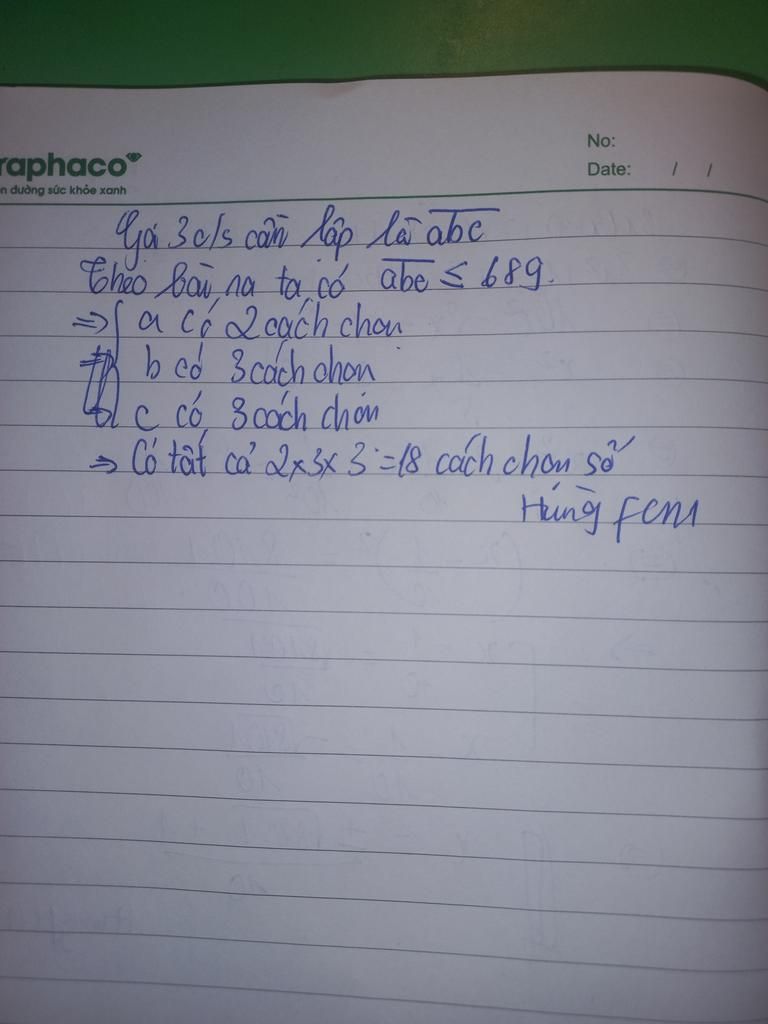 raphaco
n đường sức khỏe xanh
No:
Date: / /
Gọi 3 c/s cần lập là abc
Theo bài ra ta có abc ≤ 689.
=> a có 2 cách chọn
b có 3 cách chọn
c có 3 cách chọn
=> Có tất cả 2x3x3 = 18 cách chọn số
Hùng